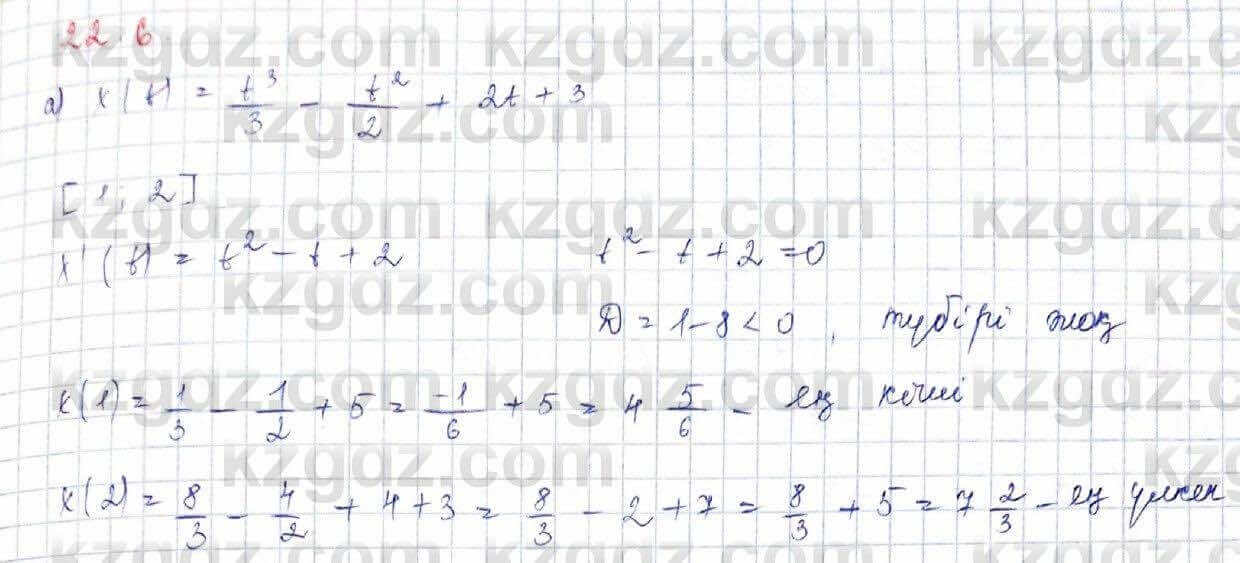 22 6
а) x(t) = t³/3 - t²/2 + 2t + 3
[1; 2]
x'(t) = t² - t + 2    t² - t + 2 = 0
D = 1 - 8 < 0, түбірі жоқ
x(1) = 1/3 - 1/2 + 5 = -1/6 + 5 = 4 5/6 - ең кіші
x(2) = 8/3 - 4/2 + 4 + 3 = 8/3 - 2 + 7 = 8/3 + 5 = 7 2/3 - ең үлкен
kzgdz.com